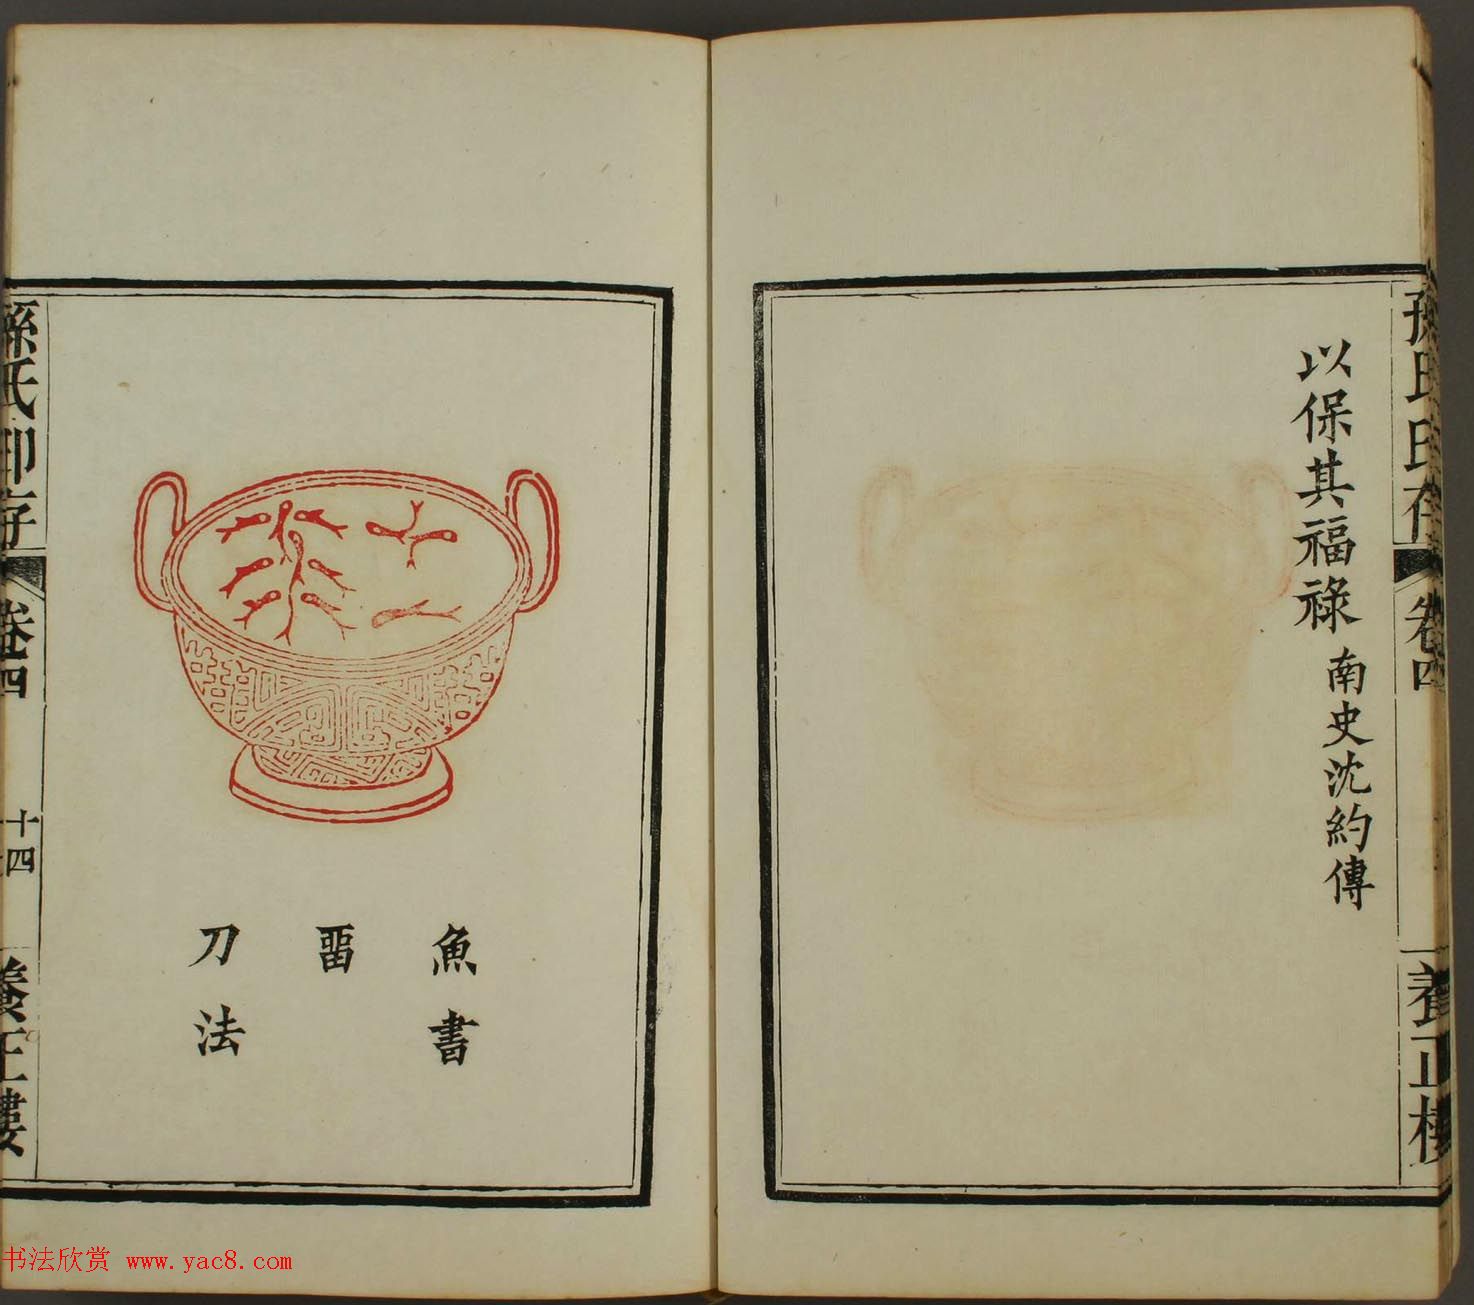 孫氏印存
卷四
養正樓
以保其福祿 南史沈約傳
魚書
畱
刀法
孫氏印存
卷四
十四
養正樓
书法欣赏 www.yac8.com